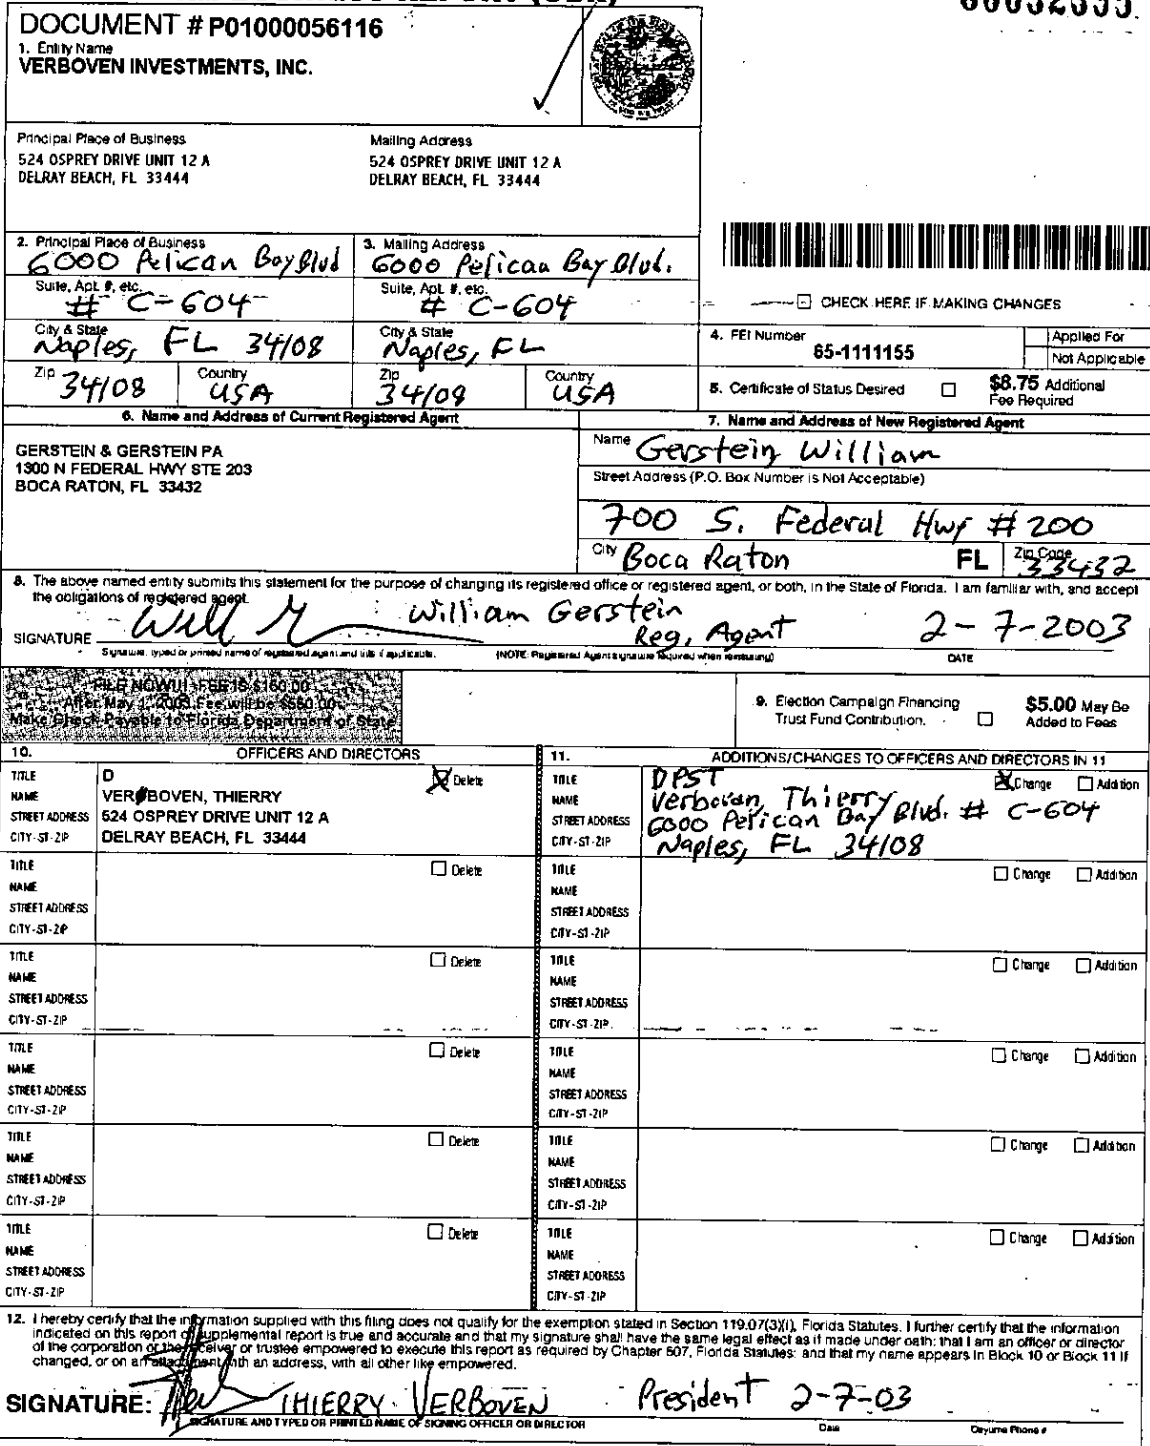 DOCUMENT # P01000056116
1. Entity Name
VERBOVEN INVESTMENTS, INC.
Principal Place of Business
524 OSPREY DRIVE UNIT 12 A
DELRAY BEACH, FL 33444
Mailing Address
524 OSPREY DRIVE UNIT 12 A
DELRAY BEACH, FL 33444
2. Principal Place of Business
6000 Pelican Bay Blvd
Suite, Apt. #, etc.
# C-604
City & State
Naples, FL 34108
Zip 34108
Country USA
3. Mailing Address
6000 Pelican Bay Blvd.
Suite, Apt. #, etc.
# C-604
City & State
Naples, FL
Zip 34108
Country USA
CHECK HERE IF MAKING CHANGES
4. FEI Number
65-1111155
Applied For
Not Applicable
5. Certificate of Status Desired
$8.75 Additional
Fee Required
6. Name and Address of Current Registered Agent
GERSTEIN & GERSTEIN PA
1300 N FEDERAL HWY STE 203
BOCA RATON, FL 33432
7. Name and Address of New Registered Agent
Name Gerstein William
Street Address (P.O. Box Number is Not Acceptable)
700 S. Federal Hwy # 200
City Boca Raton FL Zip Code 33432
8. The above named entity submits this statement for the purpose of changing its registered office or registered agent, or both, in the State of Florida. I am familiar with, and accept
the obligations of registered agent.
William Gerstein
Reg, Agent 2-7-2003
SIGNATURE
Signature, typed or printed name of registered agent and title if applicable.
(NOTE: Registered Agent signature required when reinstating)
DATE
FILE NOW!!! FEE IS $150.00
After May 1, 2003 Fee will be $550.00
Make Check Payable to Florida Department of State
9. Election Campaign Financing
Trust Fund Contribution.
$5.00 May Be
Added to Fees
10. OFFICERS AND DIRECTORS
TITLE D Delete
NAME VERBOVEN, THIERRY
STREET ADDRESS 524 OSPREY DRIVE UNIT 12 A
CITY-ST-ZIP DELRAY BEACH, FL 33444
11. ADDITIONS/CHANGES TO OFFICERS AND DIRECTORS IN 11
TITLE DPST Change Addition
NAME Verboven, Thierry
STREET ADDRESS 6000 Pelican Bay Blvd. # C-604
CITY-ST-ZIP Naples, FL 34108
TITLE Delete
NAME
STREET ADDRESS
CITY-ST-ZIP
TITLE Change Addition
NAME
STREET ADDRESS
CITY-ST-ZIP
TITLE Delete
NAME
STREET ADDRESS
CITY-ST-ZIP
TITLE Change Addition
NAME
STREET ADDRESS
CITY-ST-ZIP
TITLE Delete
NAME
STREET ADDRESS
CITY-ST-ZIP
TITLE Change Addition
NAME
STREET ADDRESS
CITY-ST-ZIP
TITLE Delete
NAME
STREET ADDRESS
CITY-ST-ZIP
TITLE Change Addition
NAME
STREET ADDRESS
CITY-ST-ZIP
TITLE Delete
NAME
STREET ADDRESS
CITY-ST-ZIP
TITLE Change Addition
NAME
STREET ADDRESS
CITY-ST-ZIP
12. I hereby certify that the information supplied with this filing does not qualify for the exemption stated in Section 119.07(3)(i), Florida Statutes. I further certify that the information
indicated on this report or supplemental report is true and accurate and that my signature shall have the same legal effect as if made under oath; that I am an officer or director
of the corporation or the receiver or trustee empowered to execute this report as required by Chapter 607, Florida Statutes; and that my name appears in Block 10 or Block 11 if
changed, or on an attachment with an address, with all other like empowered.
SIGNATURE: THIERRY VERBOVEN President 2-7-03
SIGNATURE AND TYPED OR PRINTED NAME OF SIGNING OFFICER OR DIRECTOR
Date
Daytime Phone #